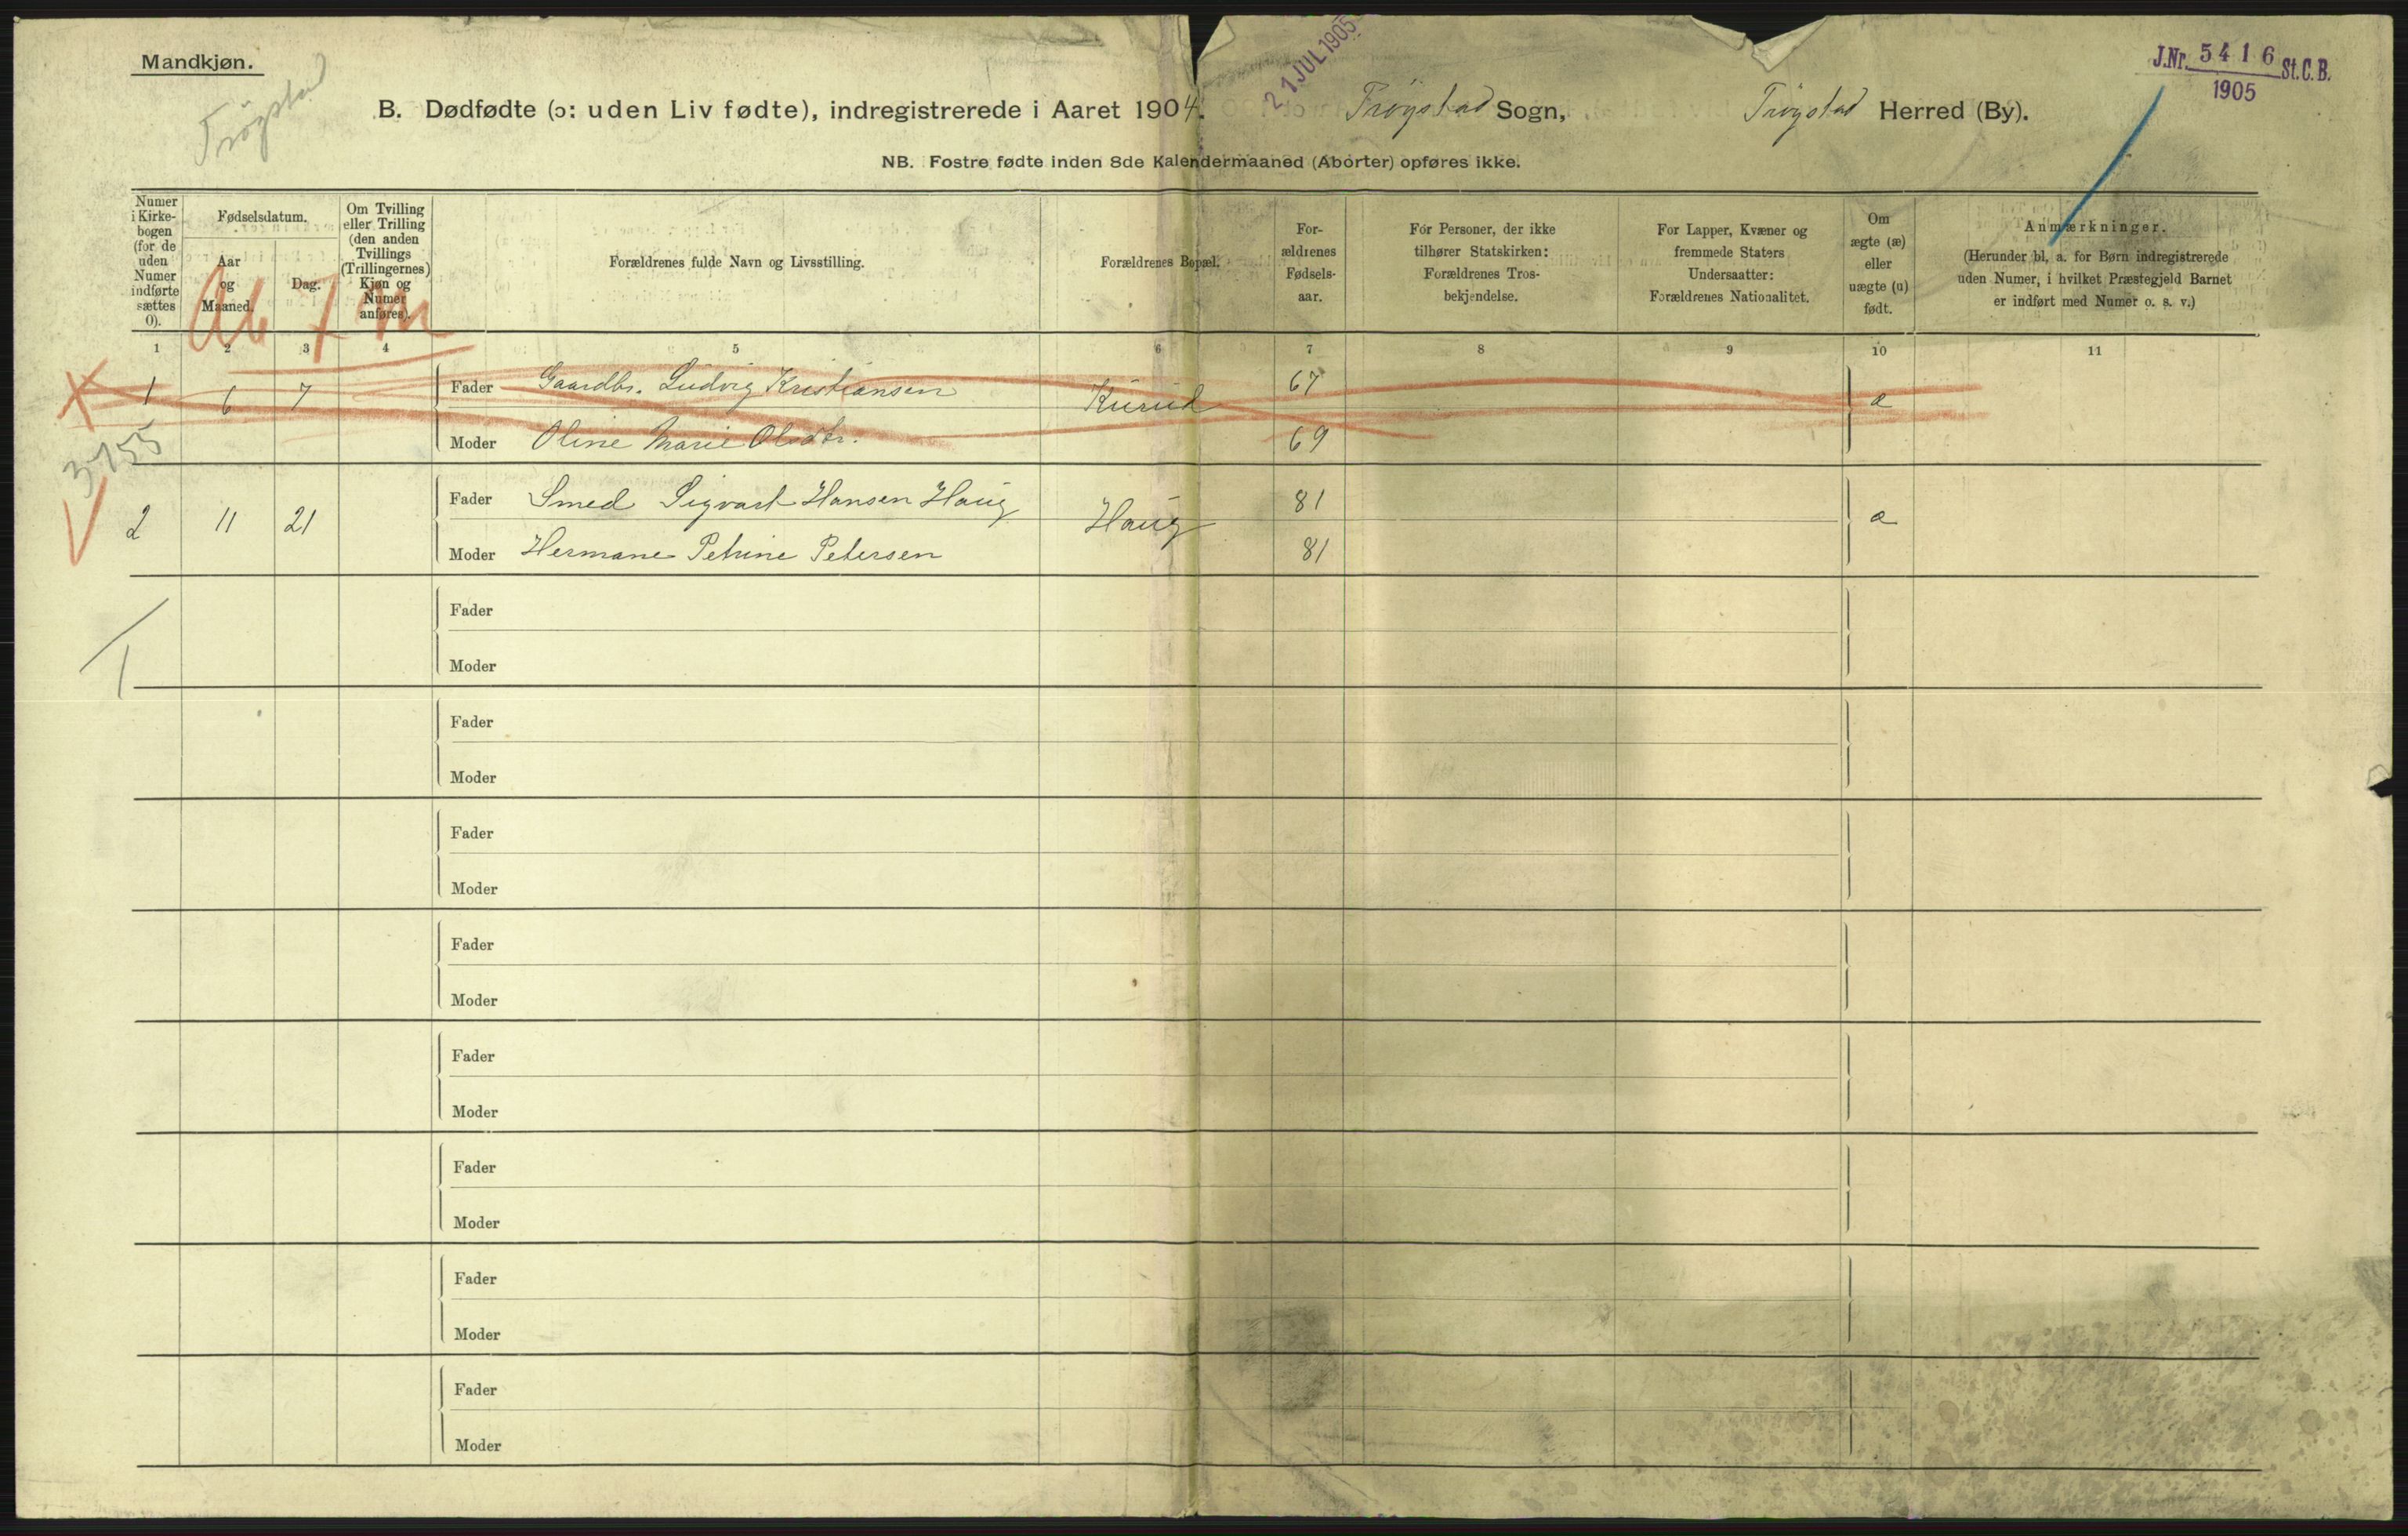 Mandkjøn.
Trøgstad
21 JUL 1905
J.Nr. 5416 St. C. B.
1905
B. Dødfødte (ɔ: uden Liv fødte), indregistrerede i Aaret 1904. Trøgstad Sogn, Trøgstad Herred (By).
NB. Fostre fødte inden 8de Kalendermaaned (Aborter) opføres ikke.
Numer
i Kirke-
bogen
(for de
uden
Numer
indførte
sættes
0).
Fødselsdatum.
Aar
og
Maaned.
Dag.
Om Tvilling
eller Trilling
(den anden
Tvillings
(Trillingernes)
Kjøn og
Numer
anføres).
Forældrenes fulde Navn og Livsstilling.
Forældrenes Bopæl.
For-
ældrenes
Fødsels-
aar.
For Personer, der ikke
tilhører Statskirken:
Forældrenes Tros-
bekjendelse.
For Lapper, Kvæner og
fremmede Staters
Undersaatter:
Forældrenes Nationalitet.
Om
ægte (æ)
eller
uægte (u)
født.
Anmærkninger.
(Herunder bl. a. for Børn indregistrerede
uden Numer, i hvilket Præstegjeld Barnet
er indført med Numer o. s. v.)
1 2 3 4 5 6 7 8 9 10 11
1 6 7 Fader Gaardbr. Ludvig Kristiansen Kurud 67 æ
Moder Oline Marie Olsdtr. 69
3155
2 11 21 Fader Smed Sigvart Hansen Haug Haug 81 æ
Moder Hermane Petrine Petersen 81
Fader
Moder
Fader
Moder
Fader
Moder
Fader
Moder
Fader
Moder
Fader
Moder
Fader
Moder
Fader
Moder